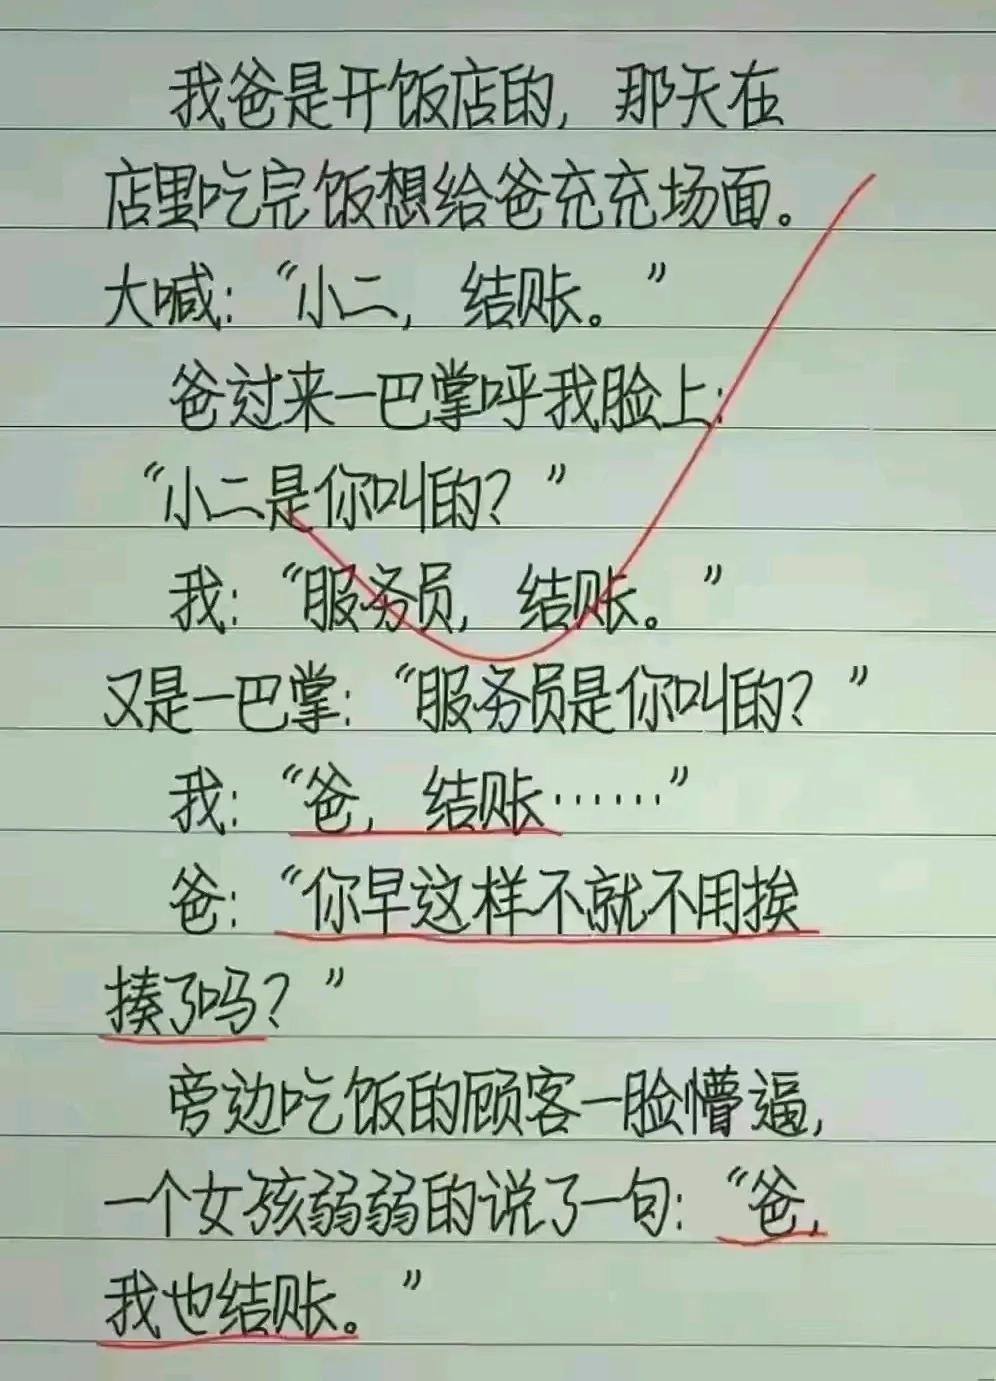 我爸是开饭店的，那天在
店里吃完饭想给爸充充场面。
大喊：“小二，结账。”
爸过来一巴掌呼我脸上：
“小二是你叫的？”
我：“服务员，结账。”
又是一巴掌：“服务员是你叫的？”
我：“爸，结账……”
爸：“你早这样不就不用挨
揍了吗？”
旁边吃饭的顾客一脸懵逼，
一个女孩弱弱的说了一句：“爸，
我也结账。”